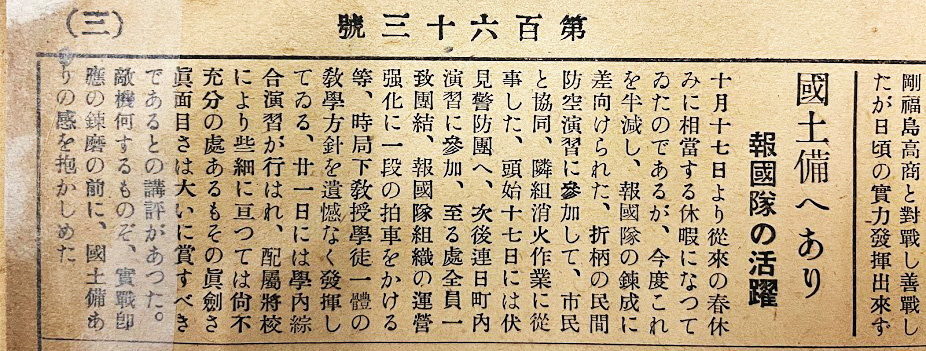 (三)
第百六十三號
剛福島高商と對戰し善戰し
たが日頃の實力發揮出來ず
國土備へあり
報國隊の活躍
十月十七日より從來の春休
みに相當する休暇になつて
ゐたのであるが、今度これ
を半減し、報國隊の鍊成に
差向けられた、折柄の民間
防空演習に參加して、市民
と協同、隣組消火作業に從
事した、頭始十七日には伏
見警防團へ、次後連日町内
演習に參加、至る處全員一
致團結、報國隊組織の運營
强化に一段の拍車をかける
等、時局下敎授學徒一體の
敎學方針を遺憾なく發揮し
てゐる、廿一日には學内綜
合演習が行はれ、配屬將校
により些細に亘つては尙不
充分の處あるもその眞劍さ
眞面目さは大いに賞すべき
であるとの講評があつた。
敵機何するものぞ、實戰卽
應の鍊磨の前に、國土備あ
りの感を抱かしめた